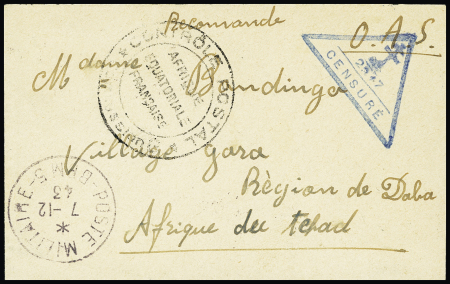 Recomandé
O.A.S.
Madame Bandinga
Village Gara
Région de Daba
Afrique du tchad
CONTRÔLE POSTAL
AFRIQUE
EQUATORIALE
FRANÇAISE
CENSURÉ
POSTE MILITAIRE
7-12
43
*